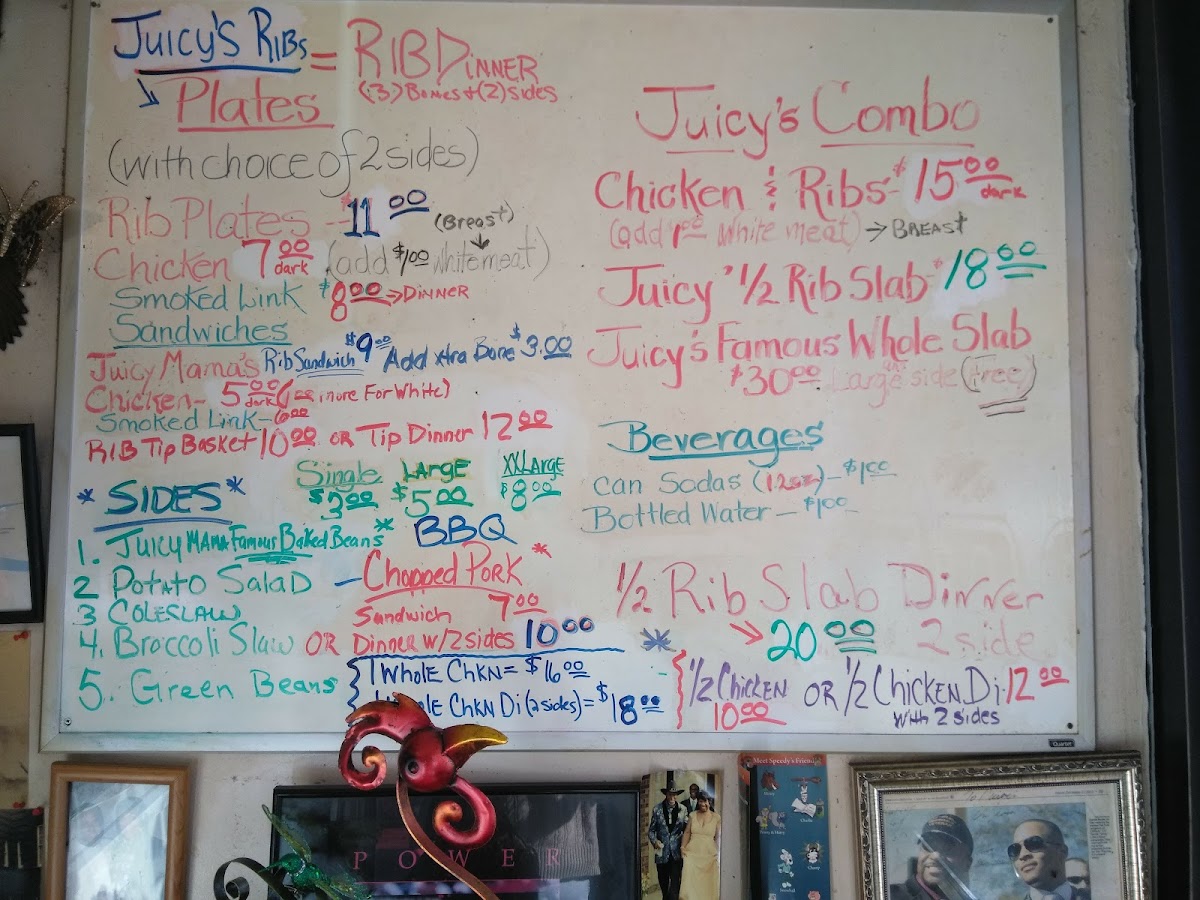 JUICY'S RIBS = RIB DINNER
(3) BONES + (2) SIDES
Plates
(with choice of 2 sides)
Rib Plates - $11.00 (Breast)
Chicken 7.00 dark (add $1.00 white meat)
Smoked Link $8.00 → DINNER
Sandwiches
Juicy Mama's Rib Sandwich $9.00 Add xtra Bone $3.00
Chicken - 5.00 dark (1.00 more For White)
Smoked Link - 6.00
RIB Tip BASKET 10.00 OR Tip Dinner 12.00
Single LARGE XXLARGE
$3.00 $5.00 $8.00
* SIDES *
1. JUICY MAMA Famous Baked Beans *
2 Potato Salad
3 COLESLAW
4. Broccoli Slaw
5. Green Beans
BBQ
- Chopped PORK *
Sandwich 7.00
OR Dinner w/2 sides 10.00
1 Whole CHKN = $16.00
CHKN Di (2 sides) = $18.00
Juicy's Combo
Chicken & Ribs - $15.00 dark
(add 1.00 White meat) → BREAST
Juicy' 1/2 Rib Slab - $18.00
Juicy's Famous Whole Slab
$30.00 Large side (Free)
Beverages
Can Sodas (12oz) - $1.00
Bottled Water - $1.00
1/2 Rib Slab Dinner
* → 20.00 2 side
1/2 Chicken OR 1/2 Chicken Di. 12.00
10.00 with 2 sides
Quartet
POWER
Meet Speedy's Friend